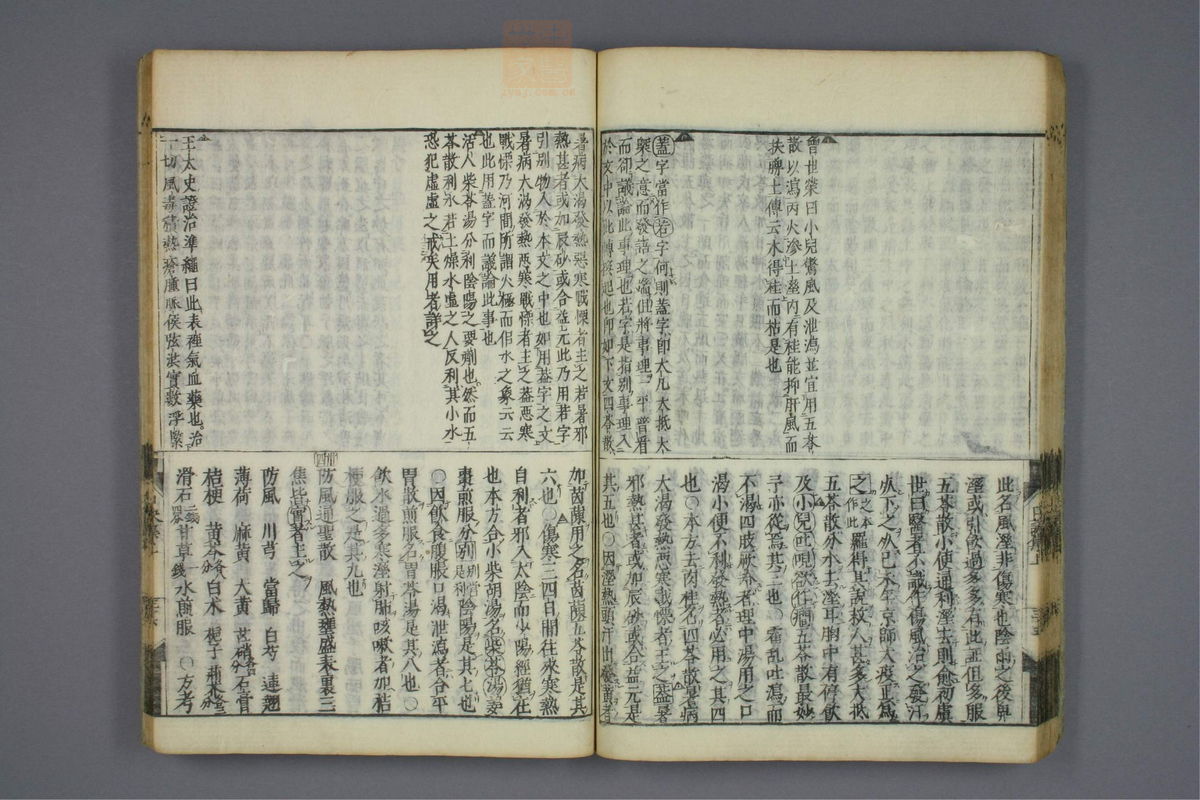 曾世榮曰小兒驚風及泄瀉並宜用五苓
散以瀉丙火滲土溼內有桂能抑肝風而
扶脾土傳云木得桂而枯是也
蓋字當作若字何則蓋字即大凡大抵大
槩之意而發語之端但將事理一平普看
而却議論此事理也若字是指別事理入
於文中以此轉換起也仰如下文四苓散
此名風溼非傷寒也陰雨之後卑
溼或引飲過多多有此証但多服
五苓散小便通利溼去則愈初虞
世曰醫者不識作傷風治之發汗
死下之死己未年京師大疫正為
之之本作此羅得其說救人甚多大抵
五苓散分水去溼耳胸中有停飲
及小兒吐哯欲作癇五苓散最妙
予亦從焉其三也○霍乱吐瀉而
不渴四肢厥冷者理中湯用之口
渴小便不利發熱者必用之其四
也○本方去肉桂名四苓散暑病
大渴發熱惡寒戰慄者主之蓋暑
邪熱甚者或加辰砂或合益元是
其五也○因溼熱頭汗出發黃者
暑病大渴發熱惡寒戰慄者主之若暑邪
熱甚者或加辰砂或合益元此乃用若字
引別物入於本文之中也如用蓋字之文
暑病大渴發熱惡寒戰慄者主之蓋惡寒
戰慄乃河間所謂火極而似水之象云云
也此用蓋字而議論此事也
活人柴苓湯分利陰陽之要劑也然而五
苓散利水若土燥水虛之人反利其小水
恐犯虛虛之戒矣用者詳之
王太史證治準繩曰此表裡氣血藥也治
一切風毒積熱瘡腫脈候弦洪實數浮緊
加茵陳用之名茵陳五苓散是其
六也○傷寒二四日間往來寒熱
自利者邪入太陰而少陽經猶在
也本方合小柴胡湯名柴苓湯姜
棗煎服分別別當作利是陰陽是其七也
○因飲食腹脹口渴泄瀉者合平
胃散煎服名胃苓湯是其八也○
飲水過多寒溼射肺咳嗽者加桔
梗服之是其九也
四 防風通聖散 風熱壅盛表裏三
焦皆實者主之
防風 川芎 當歸 白芍 連翹
薄荷 麻黃 大黃 芒硝各五分 石膏
桔梗 黃芩各八分 白朮 梔子 荊芥各三分
滑石二錢四分 甘草一錢 水煎服 ○方考